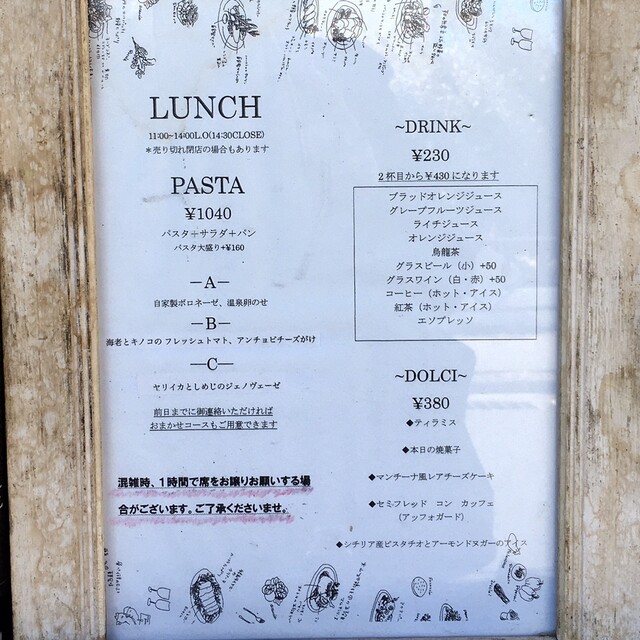 LUNCH
11:00~14:00L.O(14:30CLOSE)
＊売り切れ閉店の場合もあります
PASTA
¥1040
パスタ＋サラダ＋パン
パスタ大盛り+¥160
―A―
自家製ボロネーゼ、温泉卵のせ
―B―
海老とキノコの フレッシュトマト、アンチョビチーズがけ
―C―
ヤリイカとしめじのジェノヴェーゼ
前日までに御連絡いただければ
おまかせコースもご用意できます
混雑時、1時間で席をお譲りお願いする場
合がございます。ご了承くださいませ。
~DRINK~
¥230
2杯目から￥430になります
ブラッドオレンジジュース
グレープフルーツジュース
ライチジュース
オレンジジュース
烏龍茶
グラスビール（小）+50
グラスワイン（白・赤）+50
コーヒー（ホット・アイス）
紅茶（ホット・アイス）
エソプレッソ
~DOLCI~
¥380
◆ティラミス
◆本日の焼菓子
◆マンチーナ風レアチーズケーキ
◆セミフレッド　コン　カッフェ
（アッフォガード）
◆シチリア産ピスタチオとアーモンドヌガーのアイス